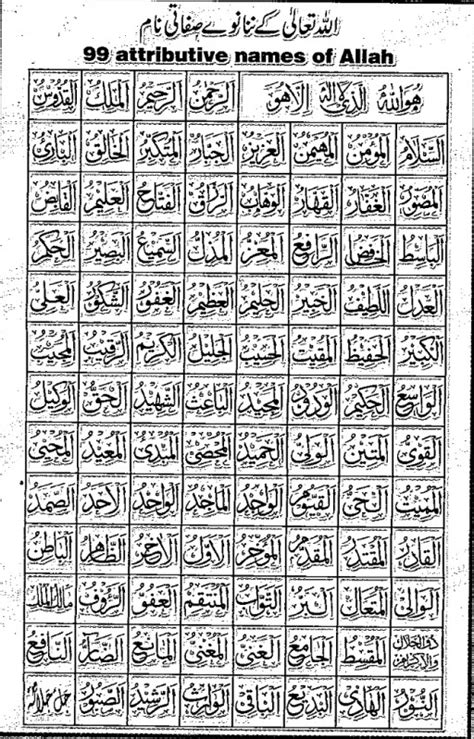 اللہ تعالیٰ کے ننانوے صفاتی نام
99 attributive names of Allah
هُوَ اللهُ الَّذِي لَا إِلٰهَ إِلَّا هُوَ اَلرَّحْمٰنُ اَلرَّحِيْمُ اَلْمَلِكُ اَلْقُدُّوْسُ
اَلسَّلَامُ اَلْمُؤْمِنُ اَلْمُهَيْمِنُ اَلْعَزِيْزُ اَلْجَبَّارُ اَلْمُتَكَبِّرُ اَلْخَالِقُ اَلْبَارِئُ
اَلْمُصَوِّرُ اَلْغَفَّارُ اَلْقَهَّارُ اَلْوَهَّابُ اَلرَّزَّاقُ اَلْفَتَّاحُ اَلْعَلِيْمُ اَلْقَابِضُ
اَلْبَاسِطُ اَلْخَافِضُ اَلرَّافِعُ اَلْمُعِزُّ اَلْمُذِلُّ اَلسَّمِيْعُ اَلْبَصِيْرُ اَلْحَكَمُ
اَلْعَدْلُ اَللَّطِيْفُ اَلْخَبِيْرُ اَلْحَلِيْمُ اَلْعَظِيْمُ اَلْغَفُوْرُ اَلشَّكُوْرُ اَلْعَلِيُّ
اَلْكَبِيْرُ اَلْحَفِيْظُ اَلْمُقِيْتُ اَلْحَسِيْبُ اَلْجَلِيْلُ اَلْكَرِيْمُ اَلرَّقِيْبُ اَلْمُجِيْبُ
اَلْوَاسِعُ اَلْحَكِيْمُ اَلْوَدُوْدُ اَلْمَجِيْدُ اَلْبَاعِثُ اَلشَّهِيْدُ اَلْحَقُّ اَلْوَكِيْلُ
اَلْقَوِيُّ اَلْمَتِيْنُ اَلْوَلِيُّ اَلْحَمِيْدُ اَلْمُحْصِي اَلْمُبْدِئُ اَلْمُعِيْدُ اَلْمُحْيِي
اَلْمُمِيْتُ اَلْحَيُّ اَلْقَيُّوْمُ اَلْوَاجِدُ اَلْمَاجِدُ اَلْوَاحِدُ اَلْاَحَدُ اَلصَّمَدُ
اَلْقَادِرُ اَلْمُقْتَدِرُ اَلْمُقَدِّمُ اَلْمُؤَخِّرُ اَلْاَوَّلُ اَلْاٰخِرُ اَلظَّاهِرُ اَلْبَاطِنُ
اَلْوَالِي اَلْمُتَعَالُ اَلْبَرُّ اَلتَّوَّابُ اَلْمُنْتَقِمُ اَلْعَفُوُّ اَلرَّؤُوْفُ مَالِكُ الْمُلْكِ
ذُو الْجَلَالِ وَالْاِكْرَامِ اَلْمُقْسِطُ اَلْجَامِعُ اَلْغَنِيُّ اَلْمُغْنِي اَلْمَانِعُ اَلضَّارُّ اَلنَّافِعُ
اَلنُّوْرُ اَلْهَادِي اَلْبَدِيْعُ اَلْبَاقِي اَلْوَارِثُ اَلرَّشِيْدُ اَلصَّبُوْرُ جَلَّ جَلَالُهُ